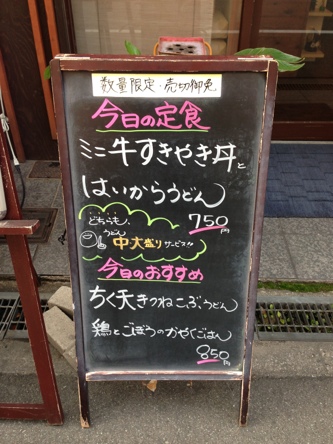 数量限定・売切御免
今日の定食
ミニ牛すきやき丼と
はいからうどん
750円
どちらも、
うどん
中・大盛りサービス!!
今日のおすすめ
ちく天きつねこぶうどん
鶏とごぼうのかやくごはん
850円